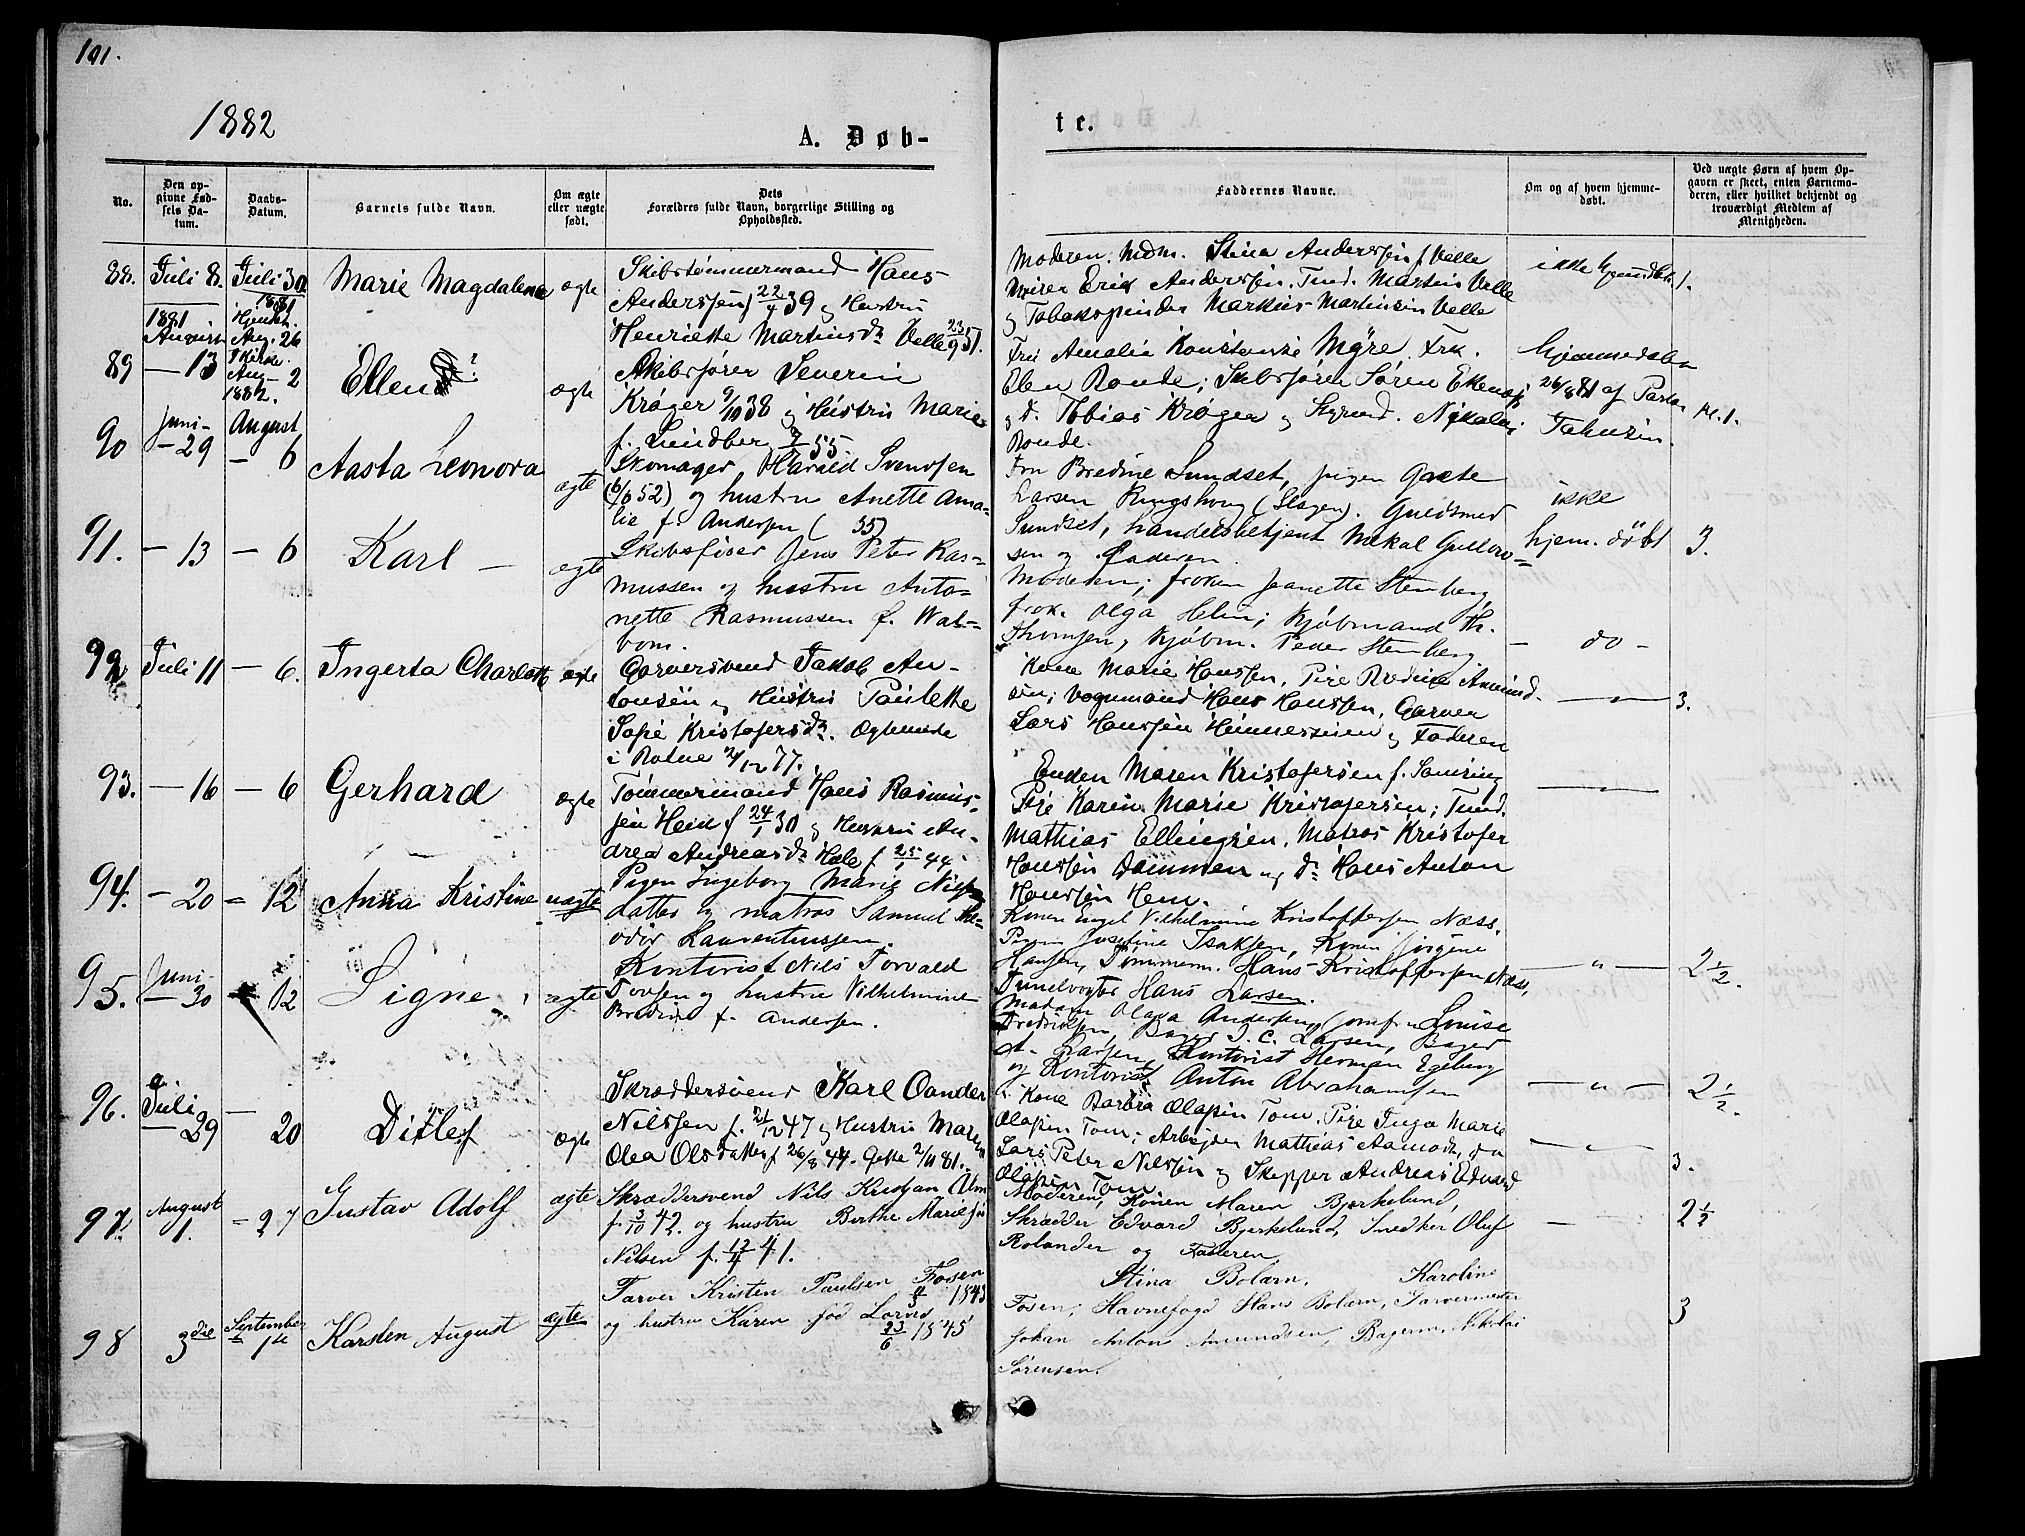 101.
1882
A. Døb-
te.
No.
Den op-
givne Fød-
sels Da-
tum.
Daabs-
Datum.
Barnets fulde Navn.
Om ægte
eller uægte
født.
Dets
Forældres fulde Navn, borgerlige Stilling og
Opholdssted.
Faddernes Navne.
Om og af hvem hjemme-
døbt.
Ved uægte Børn af hvem Op-
gaven er skeet, enten Barnemo-
deren, eller hvilket bekjendt og
troværdigt Medlem af
Menigheden.
88. Juli 8. Juli 30 Marie Magdalena ægte
Skibstømmermand Hans
Anderssen f 22/4 39 og Hustru
Henriette Martinsdr Velle 23/9 51.
Moderen. Mdm. Stina Anderssen f. Velle
Erik Anderssen. Tmd. Martin Velle
og Tobakspinder Markus Martinsen Velle
ikke hjemdbt.
89 1881 August 13
1881 Hjemdt. Aug. 26 I Kirke. Aug 2 1882.
Ellen ægte
Skibsfører Severin
Krøger 9/10 38 og Hustru Marie
f. Lindber 55
Fru Amalie Konstanse Myre, Frk.
Elen Ronde; Skibsfører Søren
og d. Tobias Krøger og Nikolai
Ronde.
hjemmedøbt
26/8 81 af Pastor
90 Juni 29 August 6 Aasta Leonora ægte
Skomager, Harald Svendsen
(6/6 52) og hustru Anette Ama-
lie f. Andersen ( 55)
Fru Bredine Sundset, pigen Grete
Larsen Ringshoug (Slagen). Guldsmed
Sundset, handelsbetjent Mikal Gullow-
sen og Faderen.
ikke
hjem. döbt 3.
91. — 13 — 6 Karl — ægte
Skibsfører Jens Peter Ras-
mussen og hustru Anto-
nette Rasmussen f. Wal-
bom.
Moderen; frøken Jeanette Stenberg,
frøk. Olga Helin; Kjøbmand Th.
Thomsen, Kjøbm. Peder Stenberg
— do —
92 Juli 11 — 6. Ingerta Charlotte ægte
Garversvend Jakob An-
tonsen og Hustru Paulette
Sofie Kristofersdr. Ægteviede
i 2/12 77.
Kone Marie Hanssen, Pige Bredine Amund-
sen; Vognmand Hans Hanssen, Garver
Lars Hanssen og Faderen
— " — 3.
93. — 16 — 6 Gerhard ægte
Tømmermand Hans Rasmus-
sen Hem f 24/1 30 og Hustru An-
drea Andreasdr Hole f 25/1 44
Enken Maren Kristofersen f. Samsing
Pige Karen Marie Kristofersen; Tmd.
Mathias Ellingsen, Matros Kristofer
Hanssen Dammen og dr Hans Anton
Hanssen Hem.
— " —
94. — 20 — 12 Anna Kristine uægte
Pigen Ingeborg Marie Nils
datter og matros Samuel The-
odor Laurentiussen.
Konen Engel Vilhelmine Kristoffersen Næss,
Pigen Josefine Isaksen, Konen Jørgine
Hansen, Tømmerm. Hans Kristoffersen Næss,
Hans Larsen.
— " — 2½.
95. Juni 30 12 Signe ægte
Kontorist Nils Torvald
Torsen og hustru Vilhelmine
Bredine f. Andersen.
Madam Olava Andersen, Jomfru Louise
Fredriksen, Bager J. C. Larsen, Bager
Larsen, Kontorist Herman Egeberg
og Kontorist Anton Abrahamsen
— " — 2½.
96. Juli 29 — 20 Ditlef ægte
Skræddersvend Karl Oander
Nilssen f. 21/12 47 og Hustru Maren
Olea Olsdatter f 26/8 44. Gifte 2/11 81.
Kone Barbra Olafsen Tom. Pige Inga Marie
Olafsen Tom; Arbejder Mathias Aamodt, do
Lars Peter Nilssen og Skipper Andreas Edvard
Olafsen Tom
— " — 3.
97. August 1. — 27 Gustav Adolf ægte
Skræddersvend Nils Kristjan
f. 3/10 42. og hustru Berthe Marie
Nilsen f. 41.
Moderen, Konen Maren Bjerkelund,
Skrædder Edvard Bjerkelund, Snedker Oluf
Rolander og Faderen
— 2½
98 3die September 1ste Karsten August ægte
Farver Kristen Paulsen Fosen 1843
og hustru Karen fød Lorns 23/6 1845
Stina Bolærn, Karoline
Fosen; Havnefogd Hans Bolærn, Farvermester
Johan Anton Amundsen, Bagerm. Nikolai
Sørensen.
3